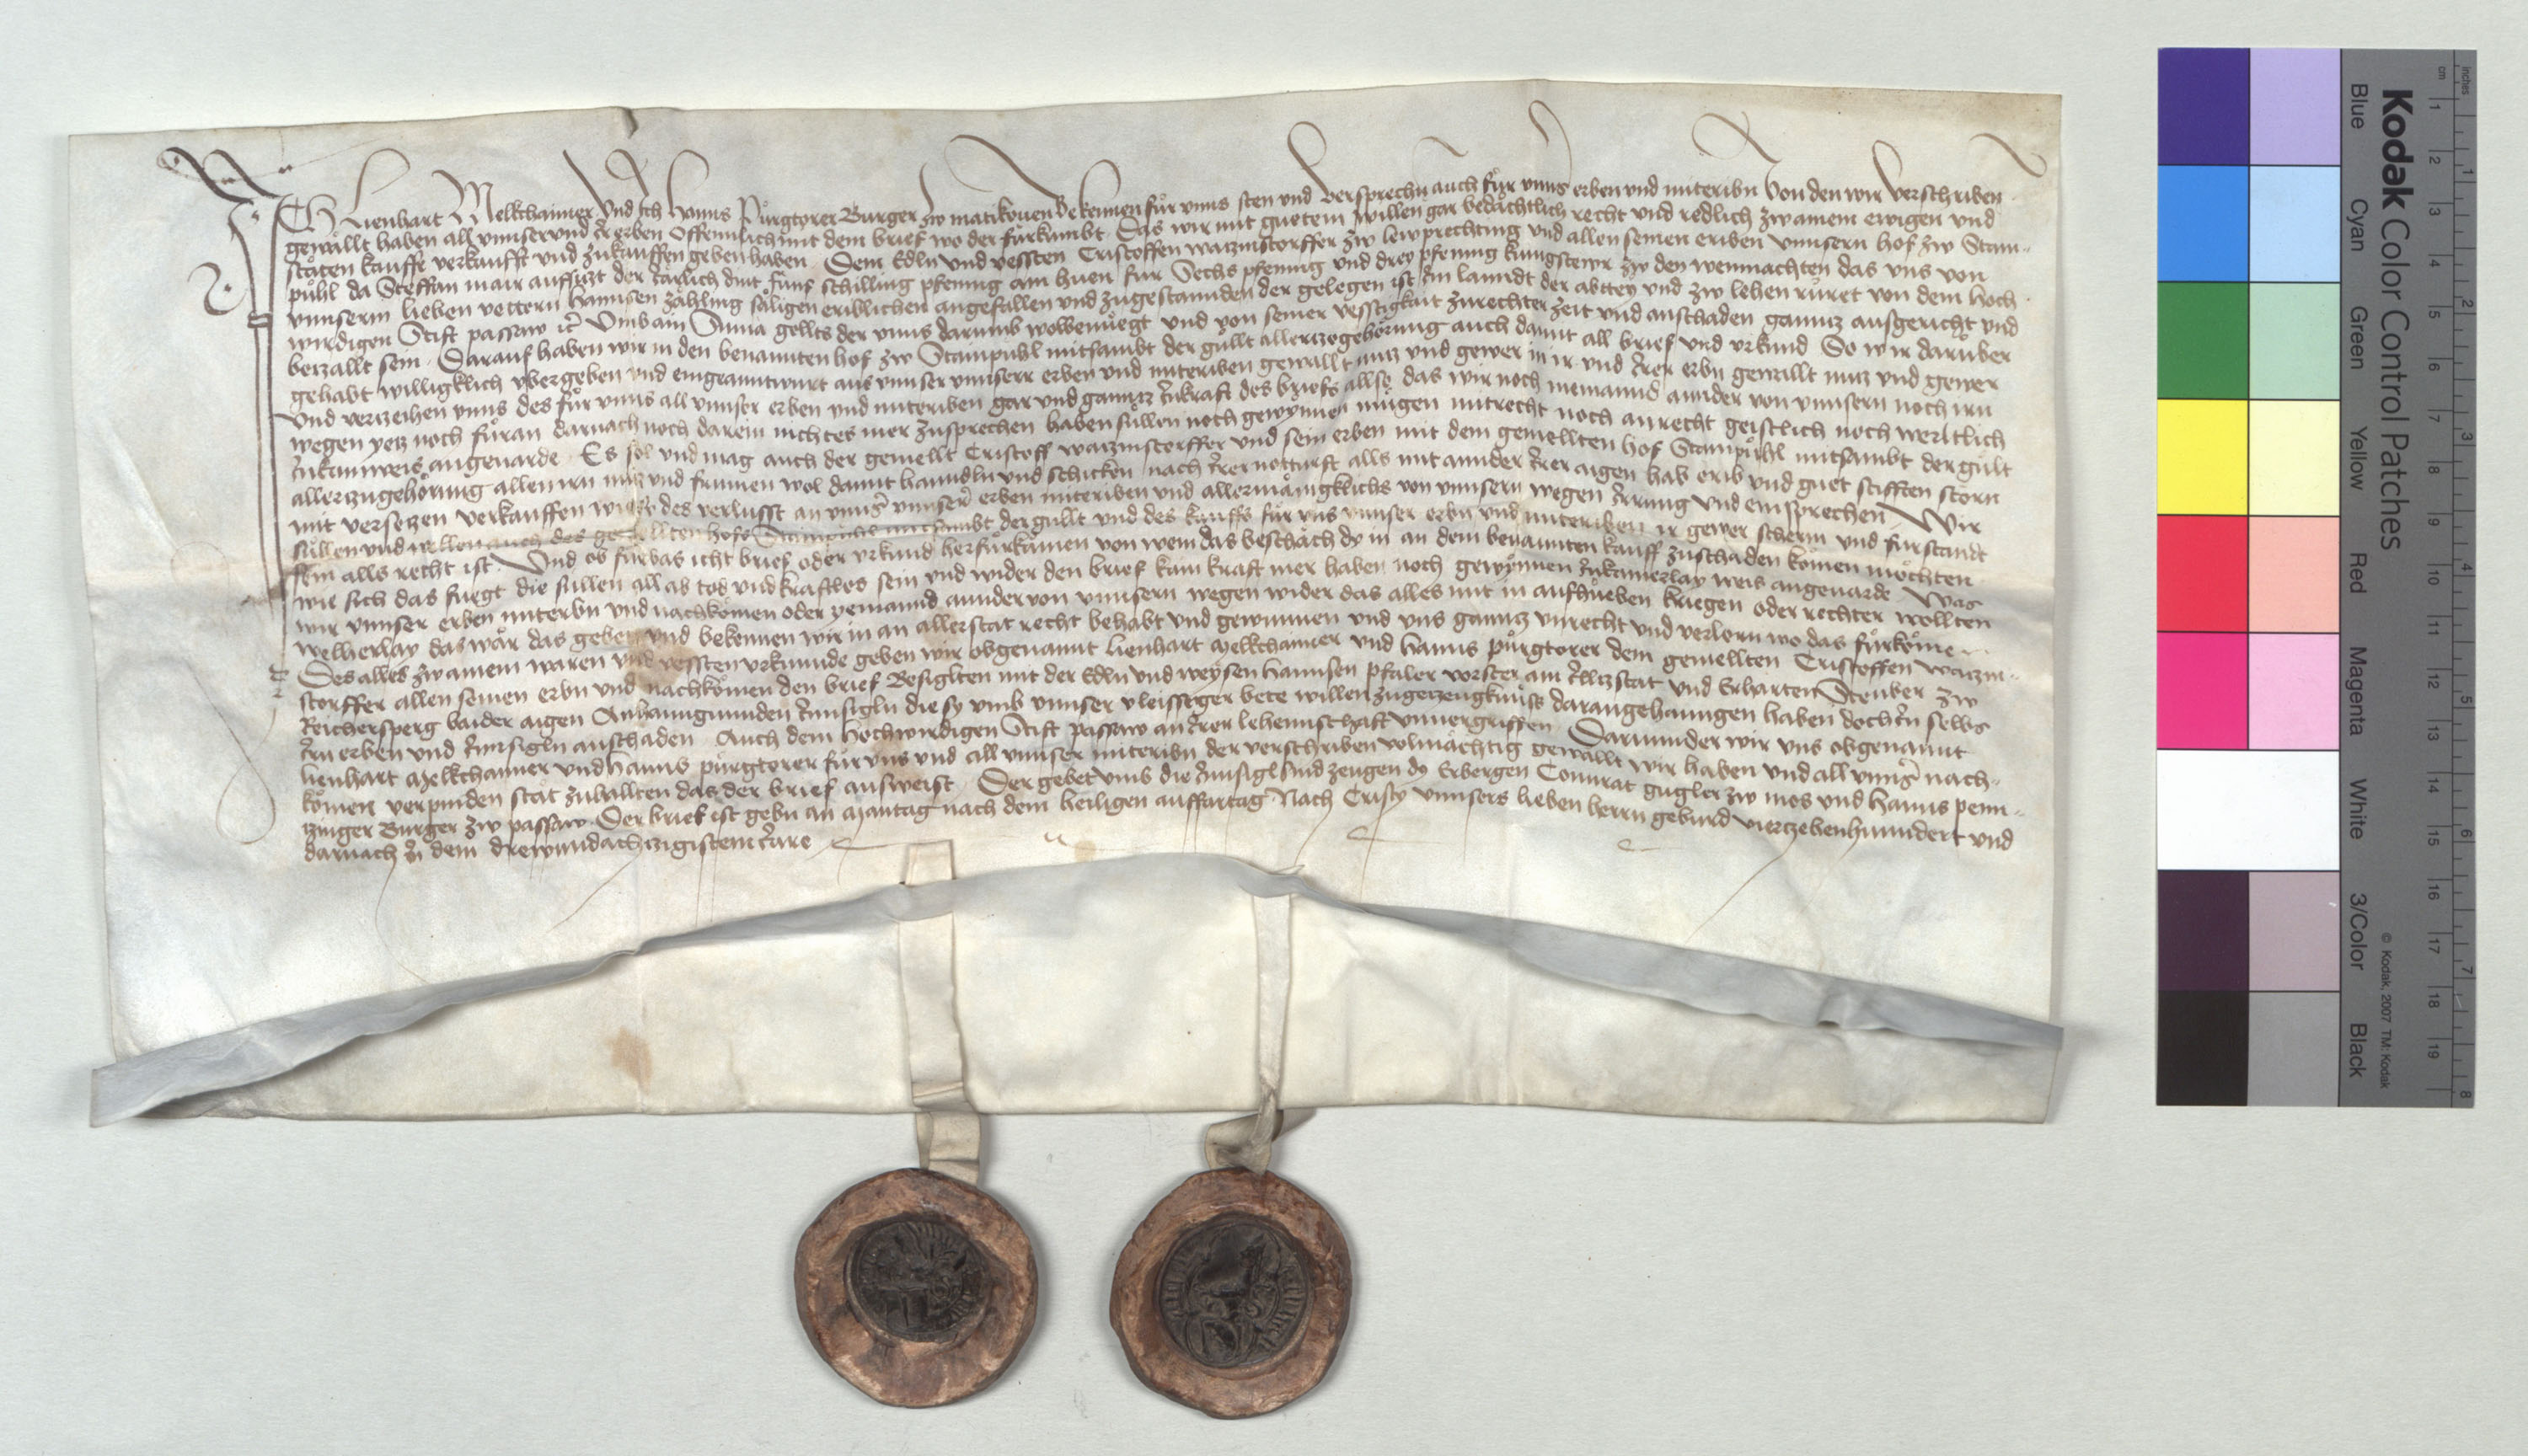 ICh Lienhart Melkchaimer Und Ich Hanns Pürgtorer Burger zw matikouen bekennen für unns sten und versprechn auch für unns erben und miteribn von den wir verschriben
gewällt haben all unnser und Irer erben Offennlich mit dem brief wo der fürkumbt Das wir mit guetem willen gar bedächtlich recht und redlich zw ainem ewigen und
stäten kauffe verkaufft und zukauffen geben haben Dem Edln und vessten Cristoffen watzmstorffer zw lewprechting und allen seinen eriben unnsern hof zw Stam-
pühl da Steffan mair auffsizt der Järlich dint fünf schilling pfenning ain huen für Sechs pfennig und drey pfennig kunigstewr zw den weinnachten das uns von
unnserm lieben vettern Hannsen zähling säligen eriblichen angefallen und zugestannden der gelegen ist Im lanndt der abbtey und zw lehen rüret von dem hoch-
wirdigen Stift passaw etc Umb ain Suma gellts der unns darumb wolbenüegt und von seiner vesstigkait zurechter zeit und anschaden gannz ausgericht und
betzallt sein Darauf haben wir in den benannten hof zw Stampuhl mitsambt der gullt allertzogehörung auch damit all brief und urkund So wir darüber
gehabt willigklich übergeben und eingeanntwurt aus unnser unnserr erben und miteriben gewällt nutz und gewer in ir und Irer erbn gewallt nutz und gewer
Und vertzeihen unns des für unns all unnser erben und miteriben gar und gannz Inkraft des briefs allso das wir noch niemannd annder von unnsern noch irn
wegen yetz noch füran darnach noch darein nichtes mer zusprechen haben süllen noch gewynnen mügen mitrecht noch anrecht geistlich noch werltlich
Inkainweis angeuarde Es sol und mag auch der gemellt Cristoff watzmstorffer und sein erben mit dem gemellten hof Stampuhl mitsambt der gült
allertzugehörung allen irn nutz und frumen wol damit hanndln und schicken nach Irer notturft alls mit annder Irer aigen hab erib und guet stifften störn
mit versetzen verkauffen wider des verlusst an unns unnser erben miteriben und allermänigklichs von unnsern wegen Irrung und einsprechen Wir
süllen und wellen auch des gemellten hofs Stampuhl mitsambt der gullt und des kauffs für uns unnser erbn und miteriben ir gewer scherm und fürstandt
sein alls recht ist Und ob fürbas icht brief oder urkund herfürkämen von wem das beschäch dy in an dem benannten kauff zuschaden komen möchten
wie sich das fuegt die süllen all ab tod und kraftlos sein und wider den brief kain kraft mer haben noch gewynnen Inkainerlay weis angeuarde Was
wir unnser erben miteribn und nachkomen oder yemannd annder von unnsern wegen wider das alles mit in aufhüeben kriegen oder rechten wollten
welherlay das wär das geben und bekennen wir in an allerstat recht behabt und gewunnen und uns gannz unrecht und verlorn wo das fürköme
Des alles zw ainem waren und vessten urkunnde geben wir obgenannt Lienhart Melkchaimer und Hanns pürgtorer dem gemellten Cristoffen watzm-
storffer allen seinen erbn und nachkömen den brief Besiglten mit der Edln und weysen Hannsen pfaler vorster am Illtzstat und Erharten Stenber zw
Reichersperg baider aigen Anhanngunnden Innsigln die sy umb unnser vleissiger bete willen zugetzeugknüss darangehanngen haben doch In selbs
Irn erben und Innsigln anschaden Auch dem Hochwirdigen Stift passaw an Irer lehennschaft unuergriffen Darunnder wir uns obgenannt
Lienhart Melkchaimer und Hanns pürgtorer für uns und all unnser miteribn der verschriben volmächtig gewällt wir haben und all unnser nach-
komen verpinden stat zuhallten das der brief ausweist Der gebet umb die Innsigl sind zeugen dy Erbergen Connrat gugler zw mos und Hanns penn-
tzinger Burger zw passaw Der brief ist gebn an Mantag nach dem heiligen auffartag Nach Cristy unnsers lieben herrn geburd viertzehenhunndert und
darnach In dem drewundachtzigistem Jare
Kodak Color Control Patches
© Kodak, 2007 TM: Kodak
Blue Cyan Green Yellow Red Magenta White 3/Color Black
inches 1 2 3 4 5 6 7 8
cm 1 2 3 4 5 6 7 8 9 10 11 12 13 14 15 16 17 18 19